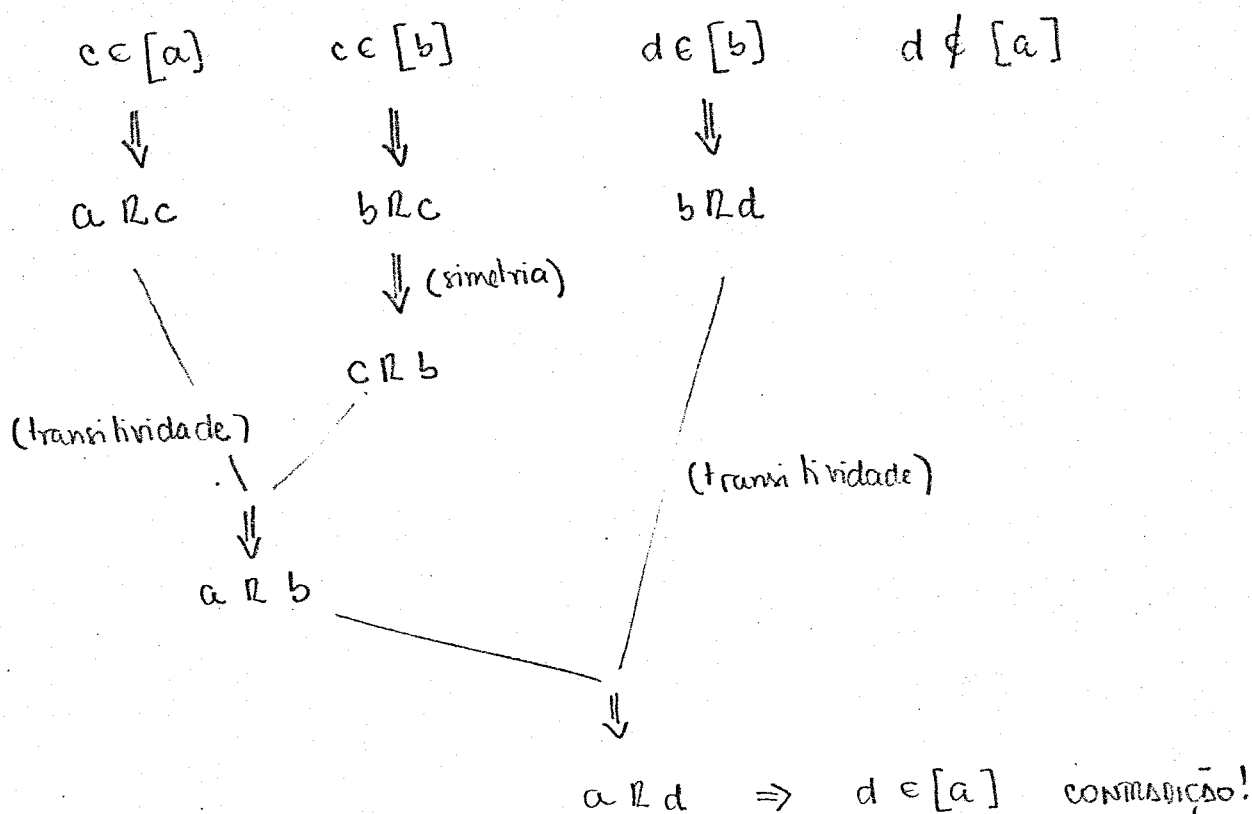 c ∈ [a] c ∈ [b] d ∈ [b] d ∉ [a]
⇓ ⇓ ⇓
a R c b R c b R d
⇓ (simetria)
c R b
(transitividade)
(transitividade)
⇓
a R b
⇓
a R d ⇒ d ∈ [a] CONTRADIÇÃO!